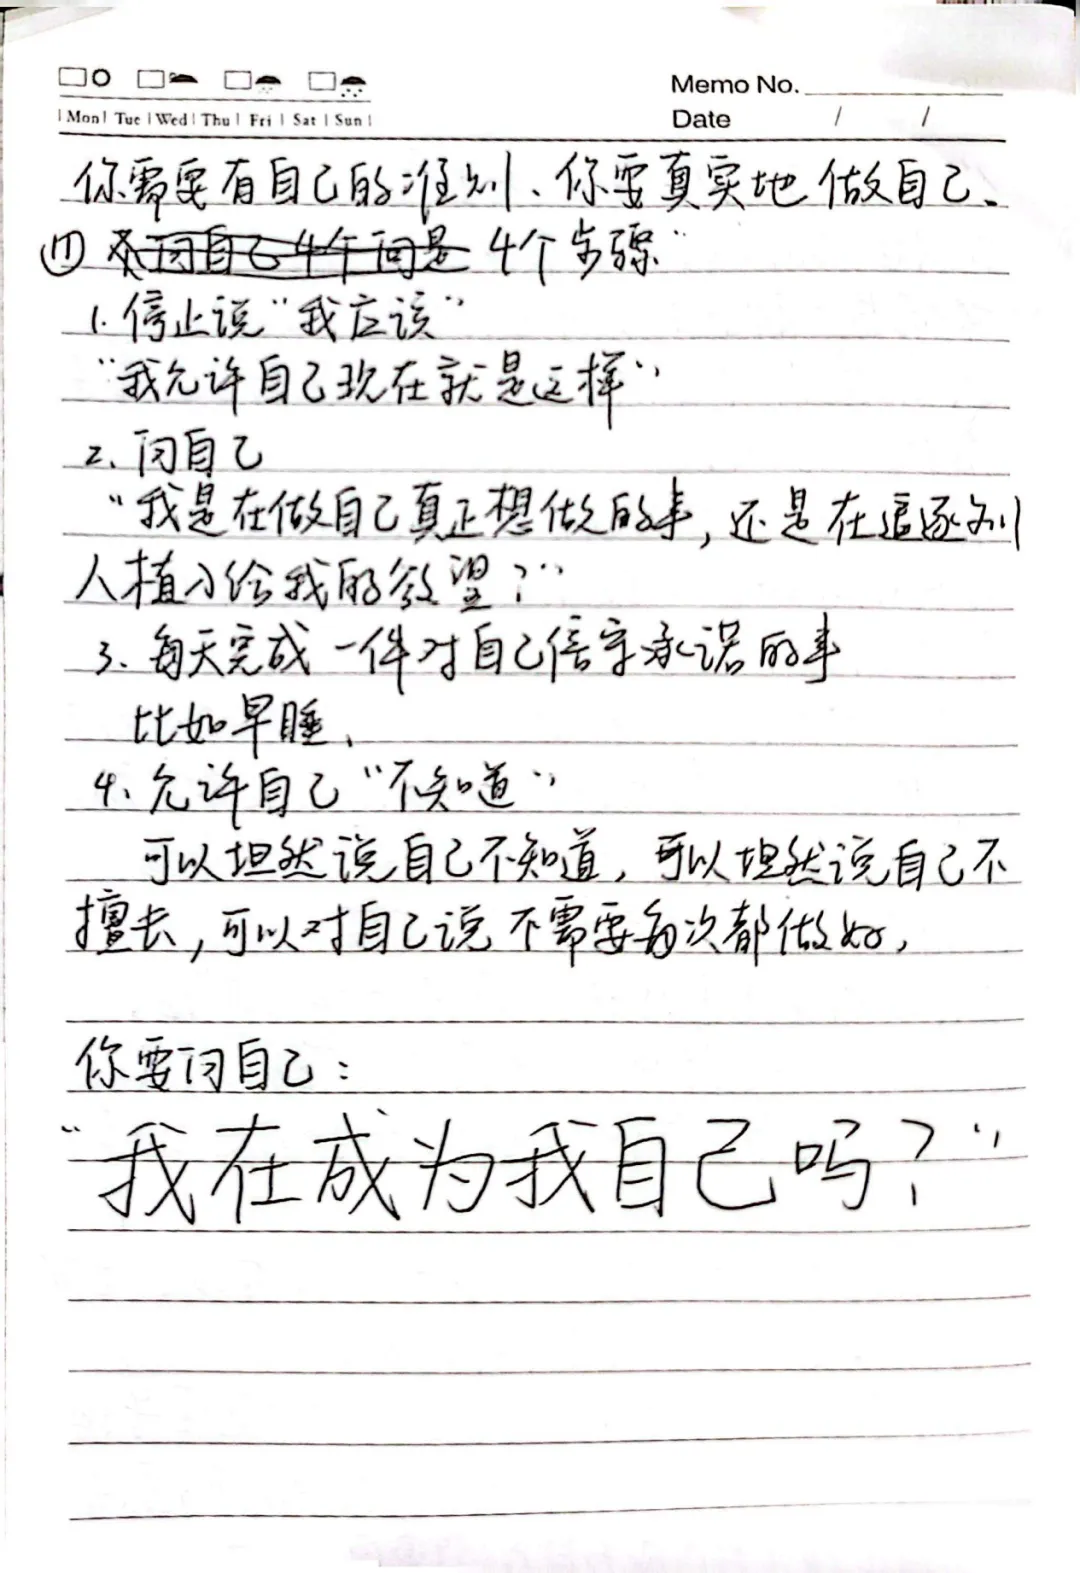 Memo No.
Mon Tue Wed Thu Fri Sat Sun
Date / /
你需要有自己的准则、你要真实地做自己、
4个步骤"
1.停止说"我应该"
"我允许自己现在就是这样"
2、问自己
"我是在做自己真正想做的事,还是在追逐别
人植入给我的欲望?"
3、每天完成一件对自己信守承诺的事
比如早睡、
4、允许自己"不知道"
可以坦然说自己不知道,可以坦然说自己不
擅长,可以对自己说不需要每次都做好,
你要问自己:
"我在成为我自己吗?"